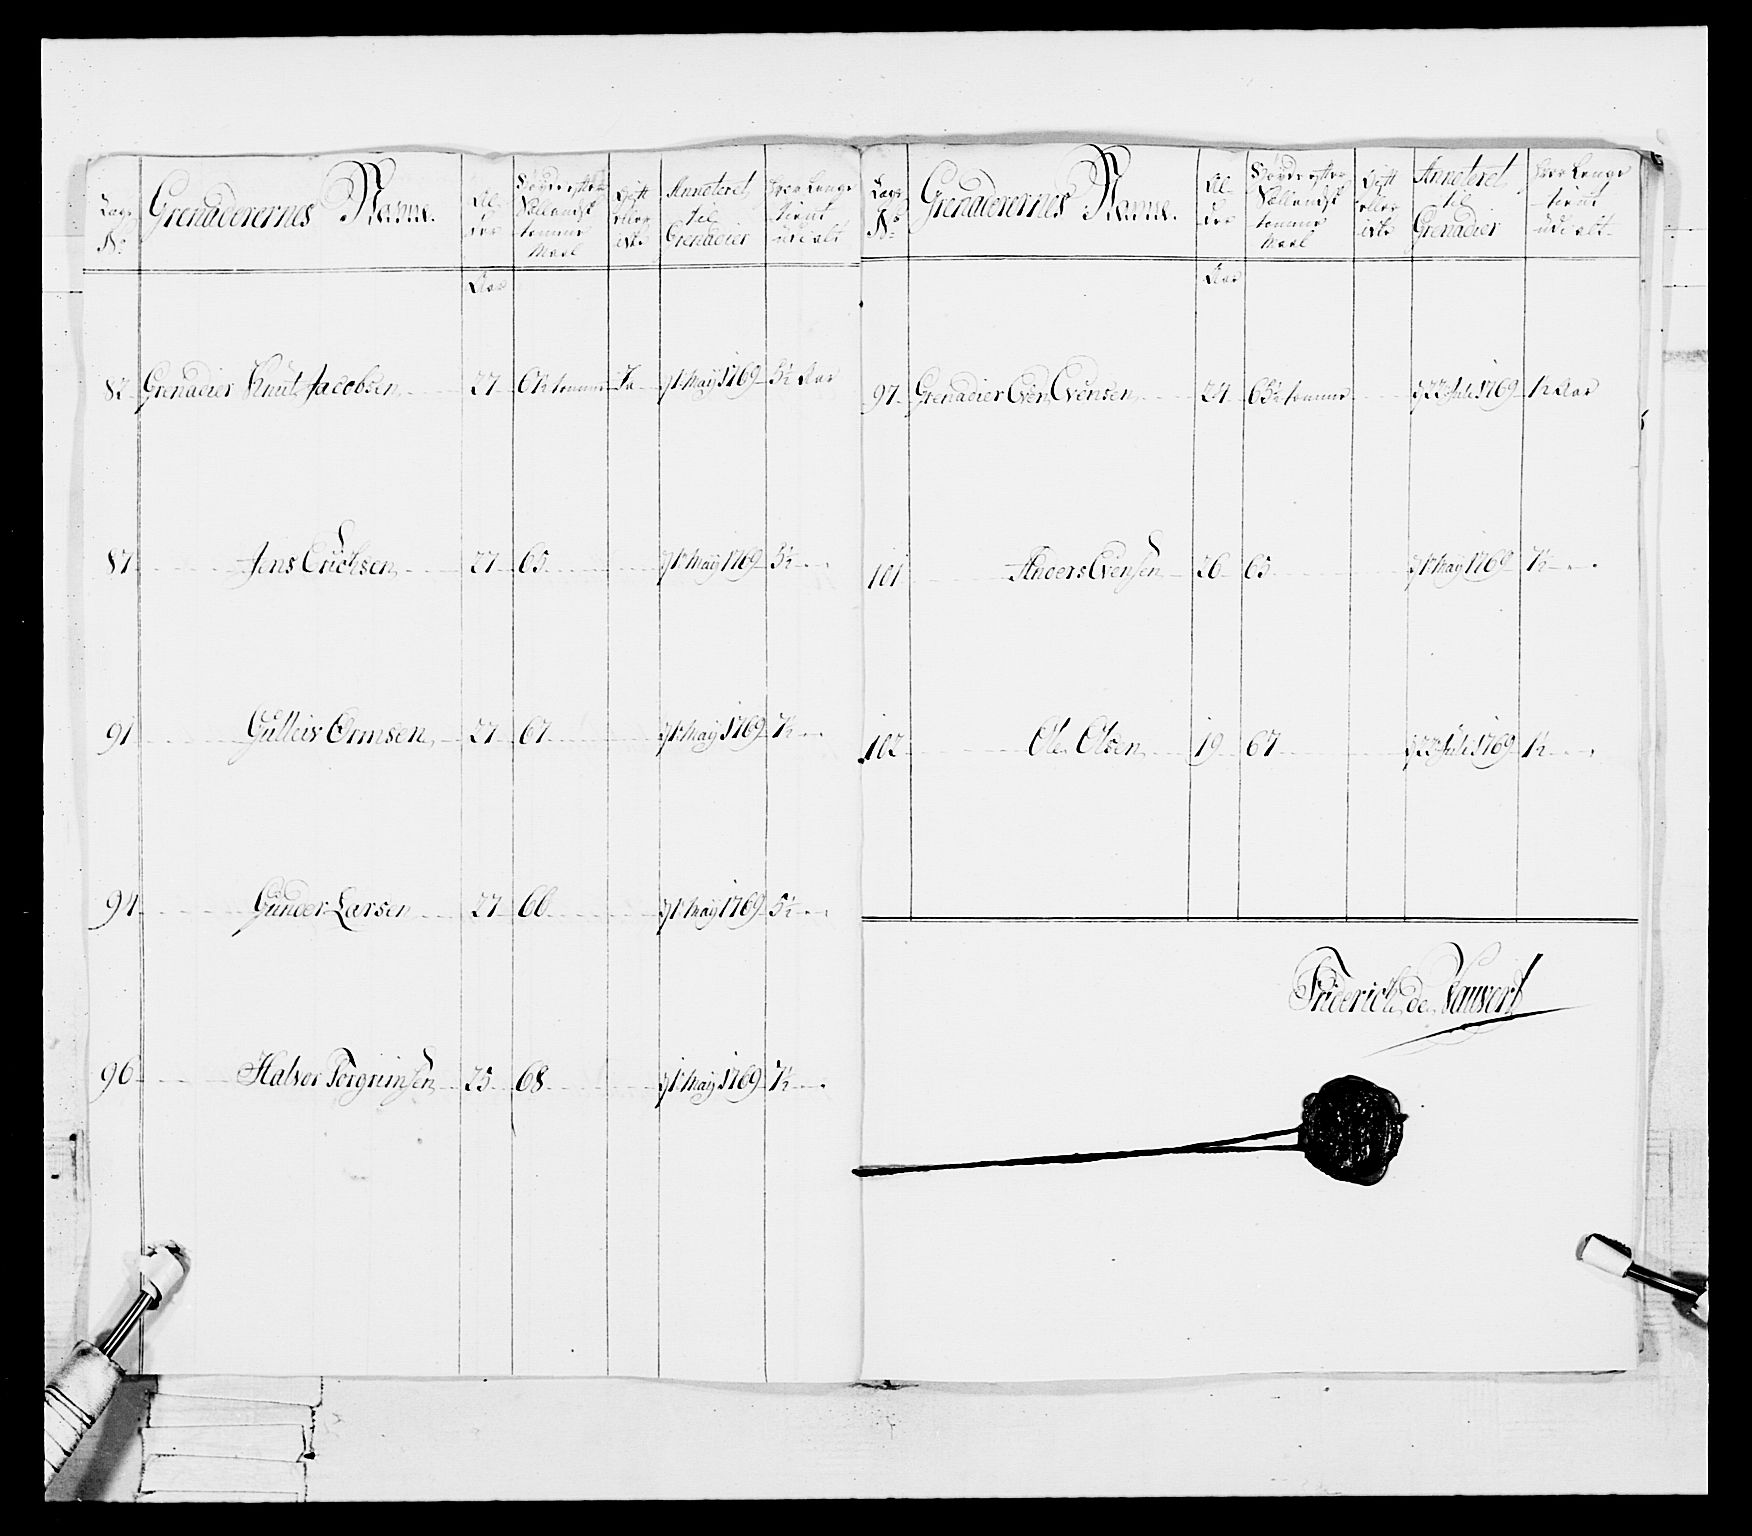 Lægs No. Grenaderernes Nafne. Al- der Høyde efter Sællandsk tommer Maal Gift eller ikke Annoteret til Grenadier Hvor Længe tient udi alt
Aar
82 Grenadier Knut Jacobsen 27 tommer Ja d 1 Maÿ 1769 5½ Aar
87 Jens Erichsen 27 65 d 1 Maÿ 1769 5½
91 Gulleir Ormsen 27 67 d 1 Maÿ 1769 7½
94 Gunder Larsen 27 66 d 1 Maÿ 1769 5½
96 Halvor Torgrimsen 25 68 d 1 Maÿ 1769 7½
Lægs No. Grenaderernes Nafne. Al- der Høyde efter Sællandsk tommer Maal Gift eller ikke Annoteret til Grenadier Hvor Længe tient udi alt
Aar
97 Grenadier Even Evensen 24 65½ tommer d 22 Juli 1769 1½ Aar
101 Anders Evensen 26 65 d 1 Maÿ 1769 7½
102 Ole Olsen 19 67 d 22 Juli 1769 1½
Friderich de